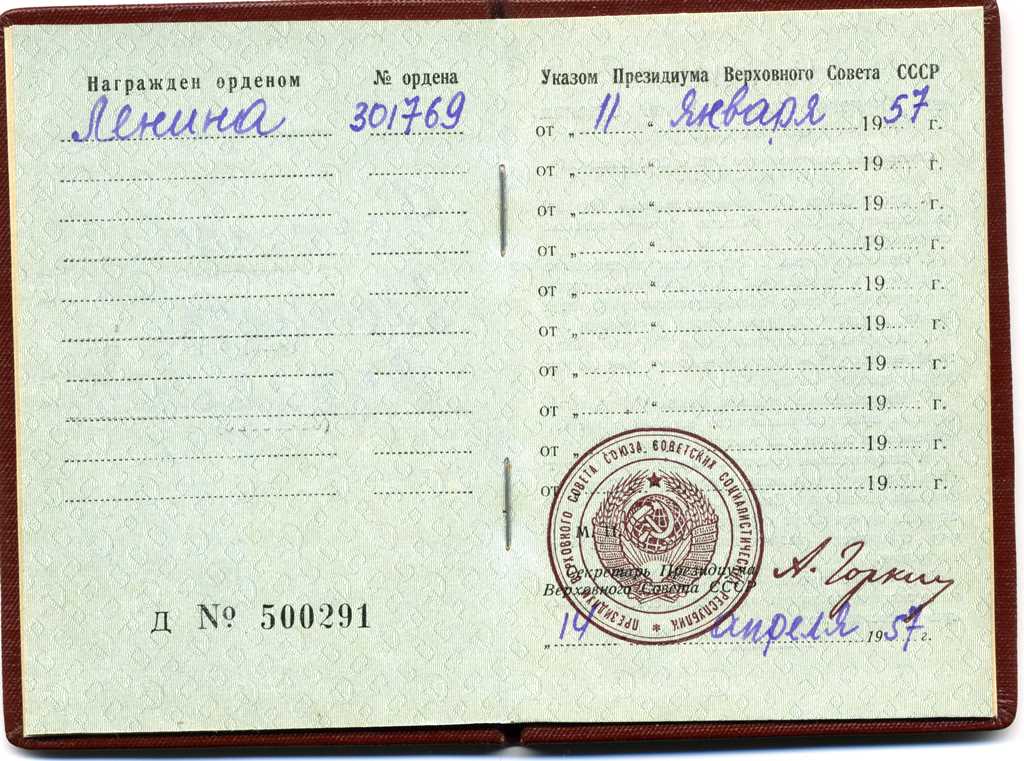 Награжден орденом № ордена
Ленина 301769
Д № 500291
Указом Президиума Верховного Совета СССР
от „ 11 “ января 1957 г.
от „ “ 19 г.
от „ “ 19 г.
от „ “ 19 г.
от „ “ 19 г.
от „ “ 19 г.
от „ “ 19 г.
от „ “ 19 г.
от „ 19 г.
от 19 г.
ПРЕЗИДИУМ ВЕРХОВНОГО СОВЕТА СОЮЗА СОВЕТСКИХ СОЦИАЛИСТИЧЕСКИХ РЕСПУБЛИК *
М. П.
Секретарь Президиума
Верховного Совета СССР
А. Горкин
„ 14 апреля 1957 г.